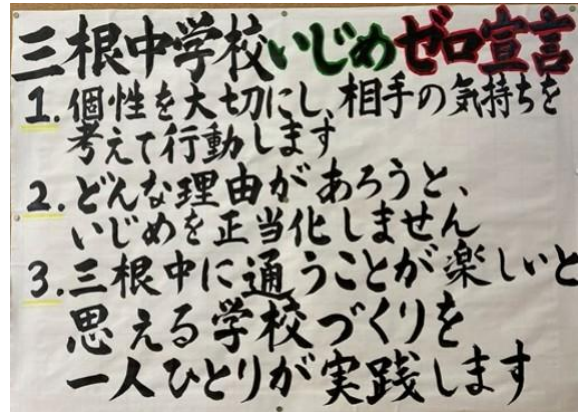 三根中学校いじめゼロ宣言
1. 個性を大切にし、相手の気持ちを
考えて行動します
2. どんな理由があろうと、
いじめを正当化しません
3. 三根中に通うことが楽しいと
思える学校づくりを
一人ひとりが実践します